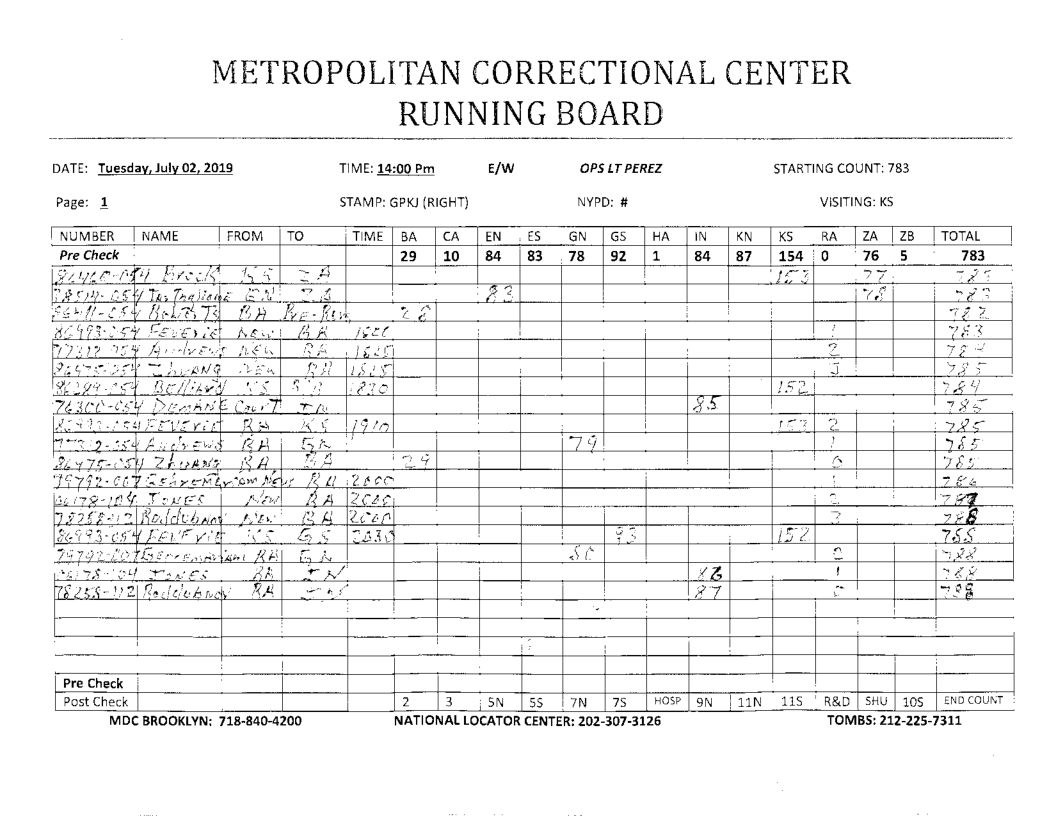 METROPOLITAN CORRECTIONAL CENTER
RUNNING BOARD
DATE: Tuesday, July 02, 2019 TIME: 14:00 Pm E/W OPS LT PEREZ STARTING COUNT: 783
Page: 1 STAMP: GPKJ (RIGHT) NYPD: # VISITING: KS
NUMBER NAME FROM TO TIME BA CA EN ES GN GS HA IN KN KS RA ZA ZB TOTAL
Pre Check 29 10 84 83 78 92 1 84 87 154 0 76 5 783
86460-054 Brock KS ZA 153 77 783
78514-054 EN ZA 83 78 783
BA 28 782
86993-054 FEVERIE NEW RA 1 783
77312-054 Andrews NEW RA 1815 2 784
86475-054 Zhuang NEW RA 1815 3 785
86289-054 KS 1830 152 784
76300-054 DEMANE Court IN 85 785
86993-054 FEVERIE RA KS 1910 153 2 785
77312-054 Andrews RA GN 79 1 785
86475-054 Zhuang RA BA 29 0 785
79792-007 New RA 2000 1 786
06178-104 JONES New RA 2000 2 787
78258-112 Roddubnov New RA 2000 3 788
86993-054 FEVERIE KS GS 2030 93 152 788
79792-007 RA GN 80 2 788
06178-104 JONES RA IN 86 1 788
78258-112 Roddubnov RA IN 87 0 788
Pre Check
Post Check 2 3 5N 5S 7N 7S HOSP 9N 11N 11S R&D SHU 10S END COUNT
MDC BROOKLYN: 718-840-4200 NATIONAL LOCATOR CENTER: 202-307-3126 TOMBS: 212-225-7311